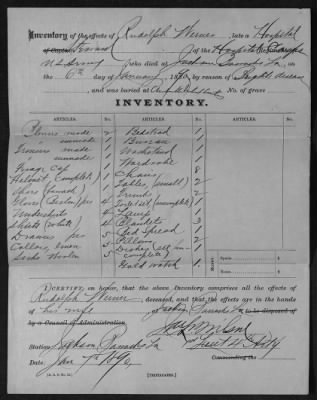 Inventory of the effects of Rudolph Werner, late a Hospital
Steward of the Hospital Corps
U.S. Army who died at Jackson Barracks La, on
the 6th day of January 1890, by reason of heart disease
and was buried at No. of grave
INVENTORY.
ARTICLES. No. ARTICLES. No.
Blouses made 2 Bedstead 1
" unmade 1 Bureau 1
Trousers made Washstand 1
" unmade 1 Wardrobe 1
Forage cap 1 Chairs
Helmet (complete) 1 Tables (small) 2
Shoes 1 Trunks 2
Gloves Berlin prs 4 Toilet set (incomplete) 1
Undershirts 4 Lamp 1
Shirts (white) 4 Blankets 3
Drawers prs 5 Bed Spread 1
Collars, linen 5 Pillows 2
Socks Woolen 2 Dishes (all incomplete)
Gold watch 1
Money: Specie $
Notes $
I CERTIFY, on honor, that the above Inventory comprises all the effects of
Rudolph Werner deceased, and that the effects are in the hands
of his wife at Jackson Barracks La to be disposed of
by a Council of Administration.
Station: Jackson Barracks La
Date: Jan 7th 1890
Commanding the